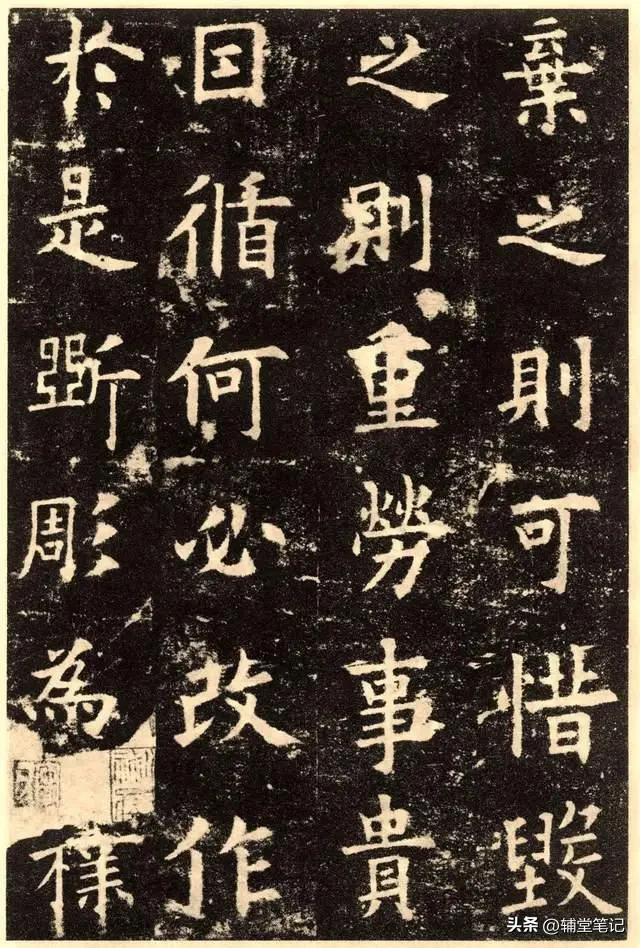 棄之則可惜毀
之則重勞事貴
因循何必改作
於是斲彫為樸
头条 @辅堂笔记